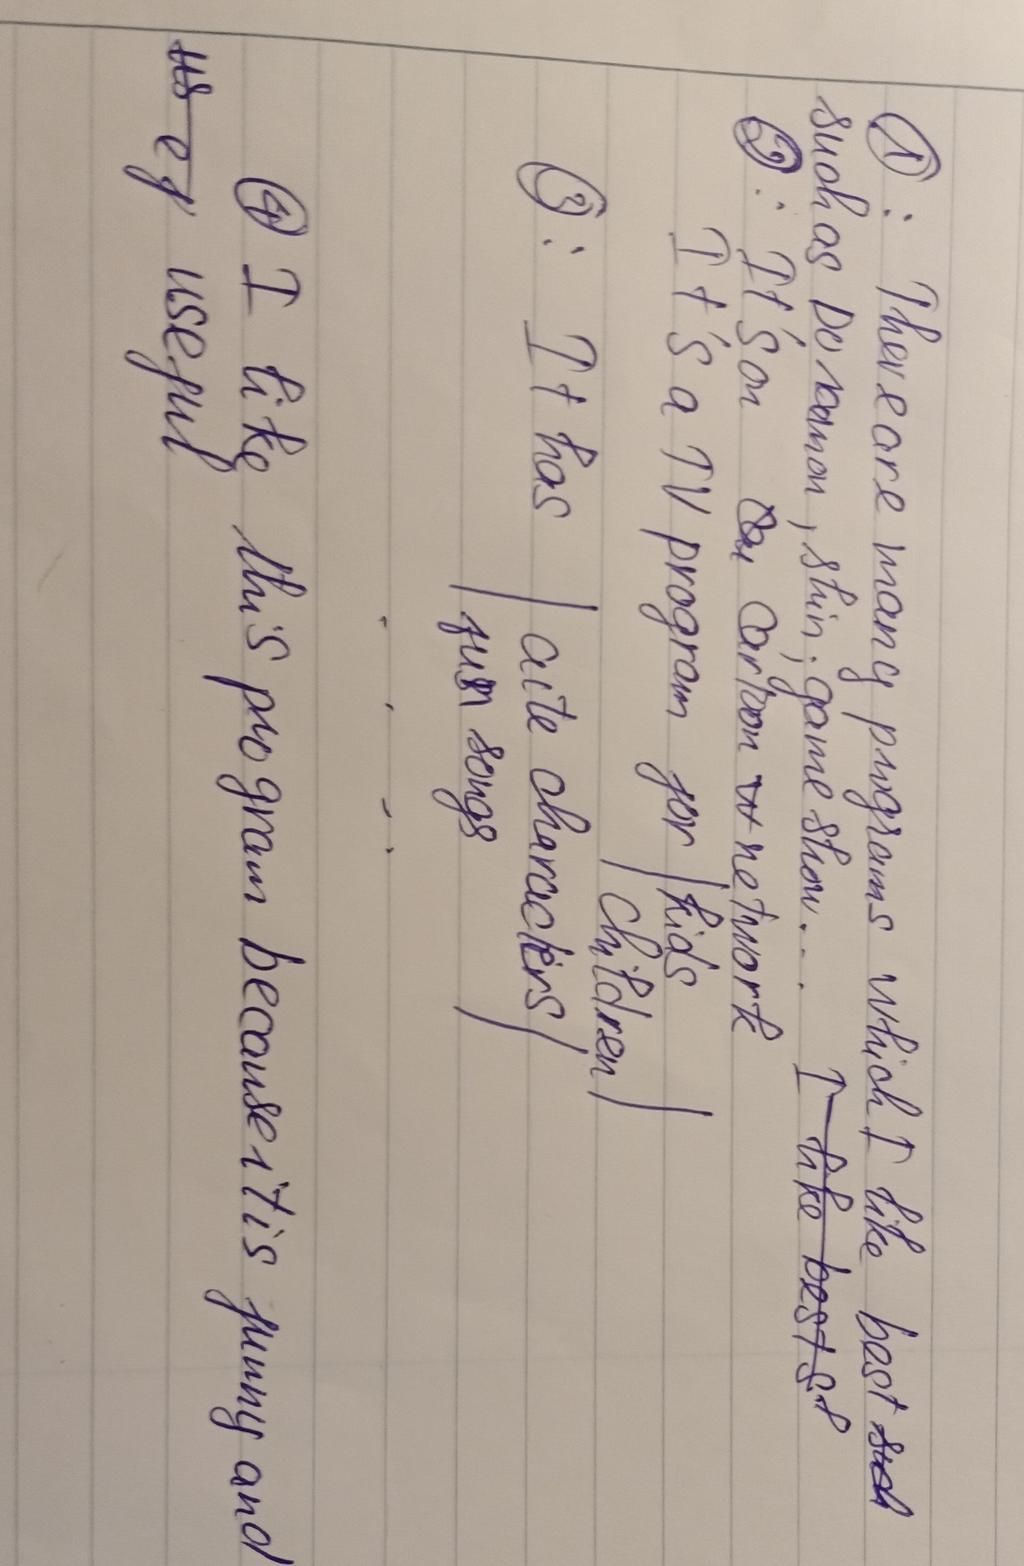 ①: There are many programs which I like best such
such as Doraemon, shin, game show... I like best s
②: It's on on cartoon network
It's a TV program for | kids |
| children |
③: It has | cute characters |
| fun songs |
. . . .
④ I like this program because it is funny and
us ef useful